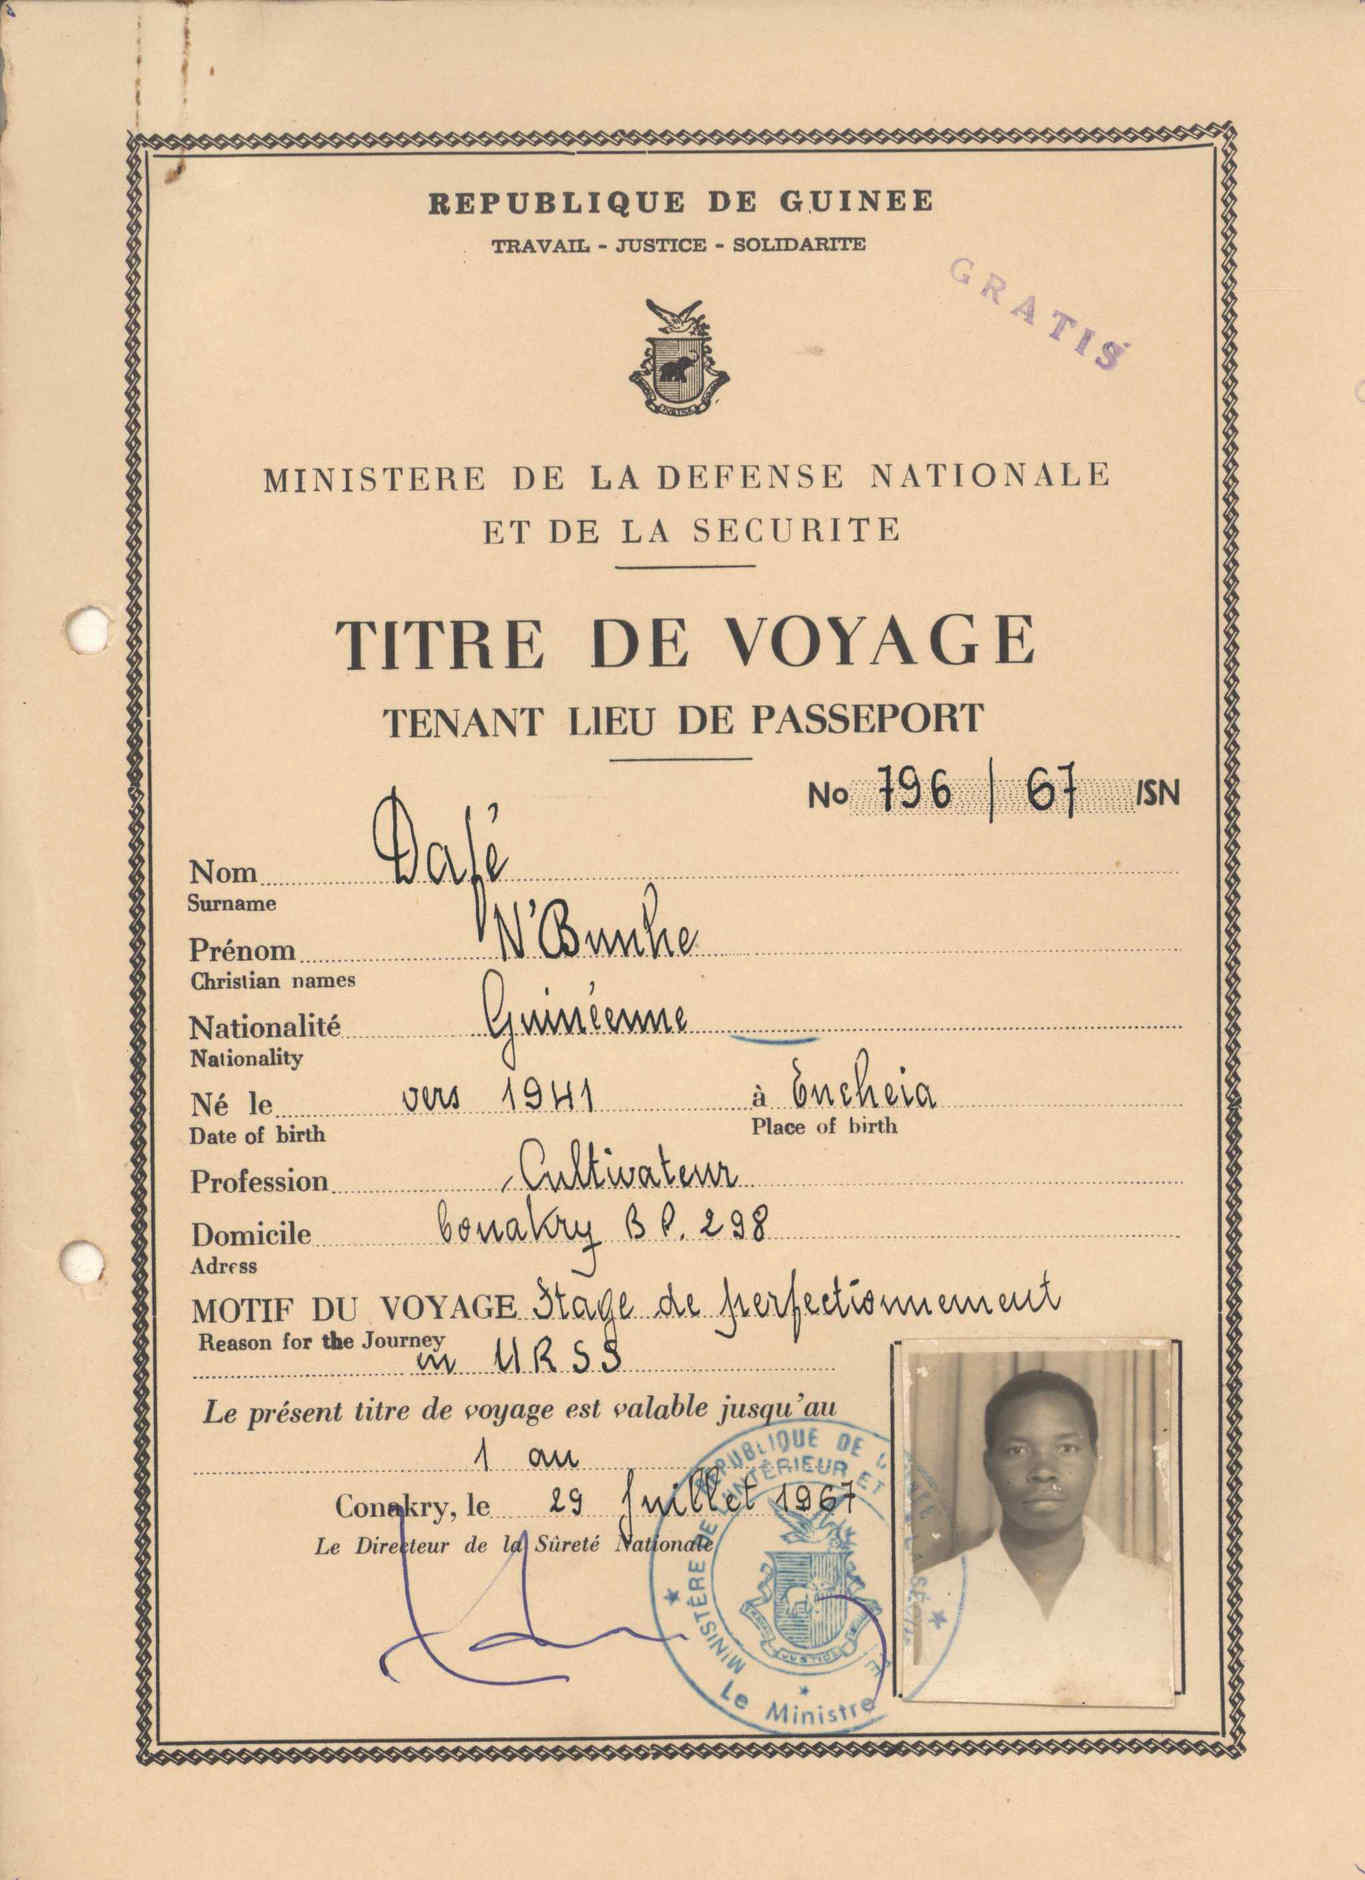 REPUBLIQUE DE GUINEE
TRAVAIL - JUSTICE - SOLIDARITE
GRATIS
MINISTERE DE LA DEFENSE NATIONALE
ET DE LA SECURITE
TITRE DE VOYAGE
TENANT LIEU DE PASSEPORT
No 796 / 67 /SN
Nom Dafé
Surname
Prénom N'Bunhe
Christian names
Nationalité Guinéenne
Nationality
Né le vers 1941 à Encheia
Date of birth Place of birth
Profession Cultivateur
Domicile Conakry B P. 298
Adress
MOTIF DU VOYAGE Stage de perfectionnement
Reason for the Journey
en URSS
Le présent titre de voyage est valable jusqu'au
1 an
Conakry, le 29 Juillet 1967
Le Directeur de la Sûreté Nationale
REPUBLIQUE DE
MINISTÈRE DE L'INTÉRIEUR ET
JUSTICE
Le Ministre